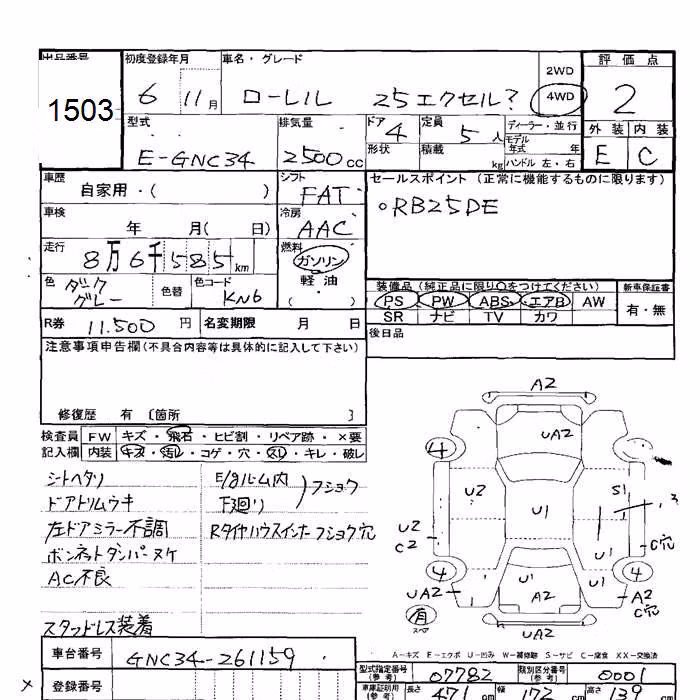 出品番号 初度登録年月 車名・グレード 2WD 評価点
1503 6 11月 ローレル 25エクセル? 4WD 2
型式 排気量 ドア 4 定員 5人 ディーラー・並行 外装 内装
E-GNC34 2500cc 形状 積載 kg モデル年式 年 E C
ハンドル 左・右
車歴 自家用・( ) シフト FAT セールスポイント (正常に機能するものに限ります)
車検 年 月( 日) 冷房 AAC ○RB25DE
走行 8万6千585km 燃料 ガソリン
軽油
( )
色 ダークグレー 色替 色コード KN6 装備品(純正品に限り○をつけてください) 新車保証書
PS PW ABS エアB AW 有・無
R券 11.500円 名変期限 月 日 SR ナビ TV カワ
注意事項申告欄(不具合内容等は具体的に記入して下さい) 後日品
修復歴 有 〔箇所 〕
検査員 FW キズ・飛石・ヒビ割・リペア跡・×要
記入欄 内装 キズ・汚レ・コゲ・穴・スレ・キレ・破レ
シートヘタリ
ドアトリムウキ
左ドアミラー不調
ボンネットダンパーヌケ
AC不良
スタッドレス装着
E/gルーム内
下廻り
フショク
Rタイヤハウスインナーフショク穴
A2
UA2
4 4
U2 S1 3
U1
U2
C2 U1 C穴
4 4
UA2 U1 U1 A2
A2 C穴
有
スペア
UA2
A-キズ E-エクボ U-凹み W-補修跡 S-サビ C-腐食 XX-交換済
車台番号 GNC34-261159 型式指定番号(参考) 07782 類別区分番号(参考) 0001
登録番号 車庫証明用(参考) 長さ 471cm 幅 172cm 高さ 139cm